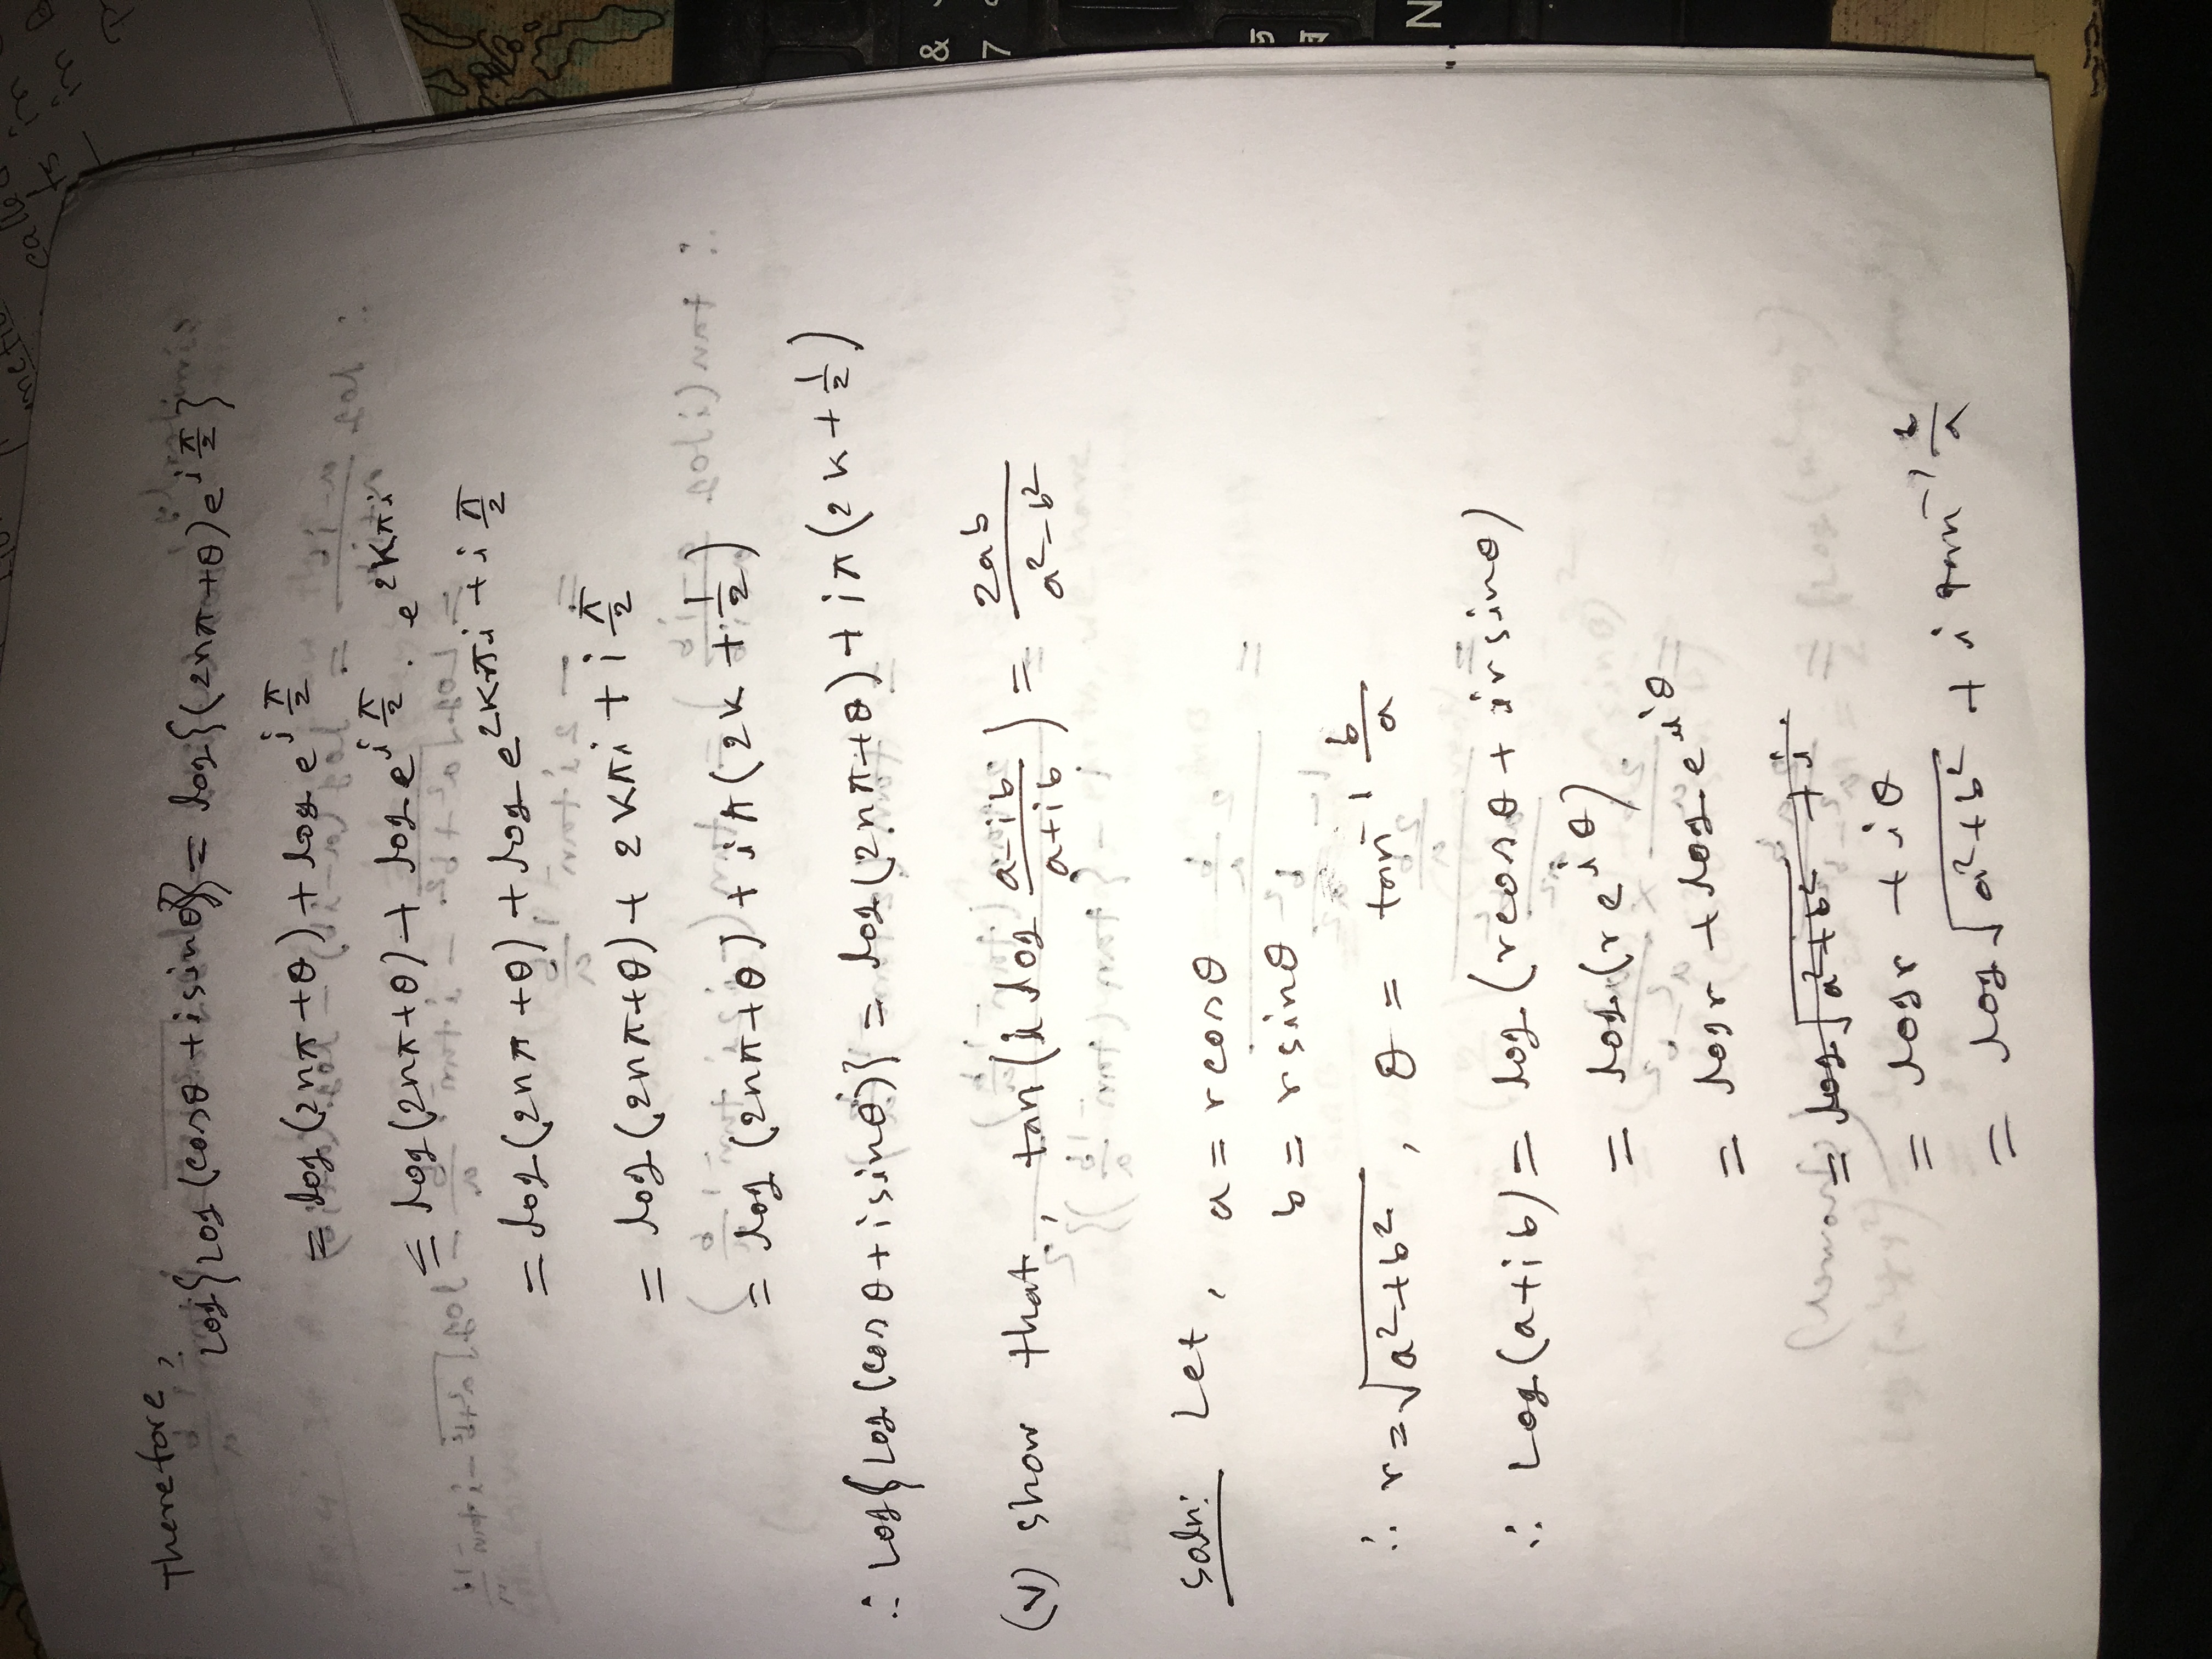 Therefore,
Log{Log(cosθ + isinθ)} = log{(2nπ+θ)e^{i π/2}}
= log(2nπ+θ) + log e^{i π/2}
= log(2nπ+θ) + log e^{i π/2} . e^{2Kπi}
= log(2nπ+θ) + log e^{2Kπi + i π/2}
= log(2nπ+θ) + 2Kπi + i π/2
= log(2nπ+θ) + iπ(2K + 1/2)
∴ Log{Log(cosθ + isinθ)} = log(2nπ+θ) + iπ(2K + 1/2)
(v) show that, tan(i log (a-ib)/(a+ib)) = 2ab/(a²-b²)
Soln: Let, a = rcosθ
b = rsinθ
∴ r = √(a²+b²), θ = tan⁻¹ b/a
∴ Log(a+ib) = log(rcosθ + irsinθ)
= log(re^{iθ})
= logr + log e^{iθ}
= log√(a²+b²) + i
= logr + iθ
= log√(a²+b²) + i tan⁻¹ b/a
&
7
N